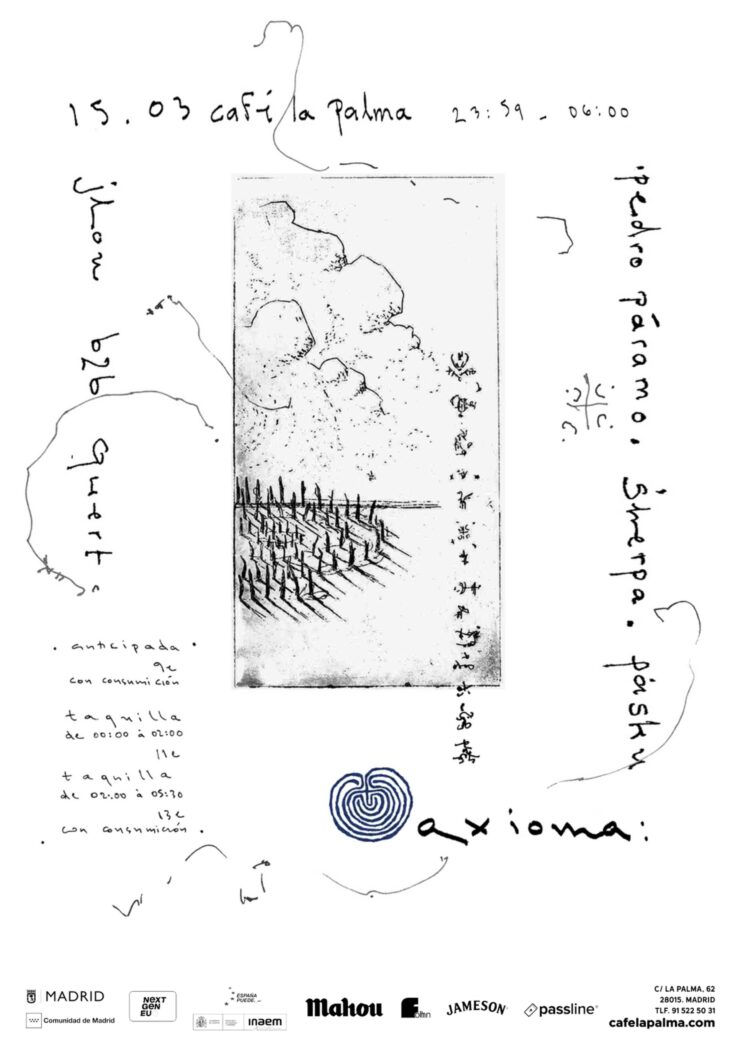 15.03 café la palma 23:59 - 06:00
jhon b2b quert.
pedro páramo. sherpa. pásku
· anticipada ·
9€
con consumición
taquilla
de 00:00 à 02:00
11€
taquilla
de 02:00 à 05:30
13€
· con consumición ·
axioma:
MADRID
Comunidad de Madrid
NEXT
GEN
EU
ESPAÑA
PUEDE.
inaem
Mahou
JAMESON
passline
C/ LA PALMA, 62
28015. MADRID
TLF. 91 522 50 31
cafelapalma.com